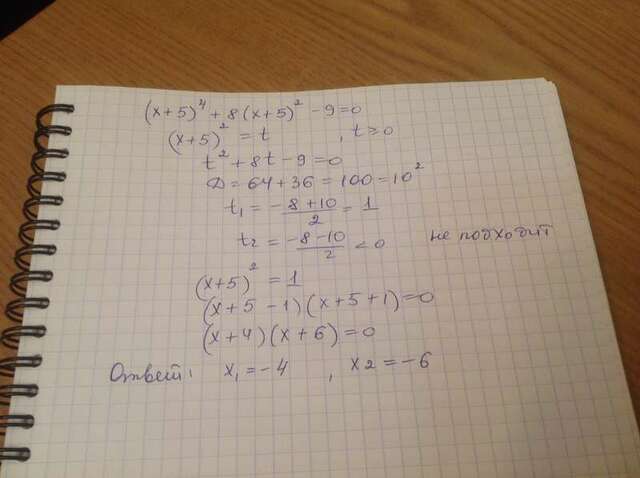 (x+5)⁴ + 8(x+5)² - 9 = 0
(x+5)² = t , t ≥ 0
t² + 8t - 9 = 0
D = 64 + 36 = 100 = 10²
t₁ = (-8+10)/2 = 1
t₂ = (-8-10)/2 < 0 не подходит
(x+5)² = 1
(x+5-1)(x+5+1) = 0
(x+4)(x+6) = 0
Ответ: x₁ = -4 , x2 = -6